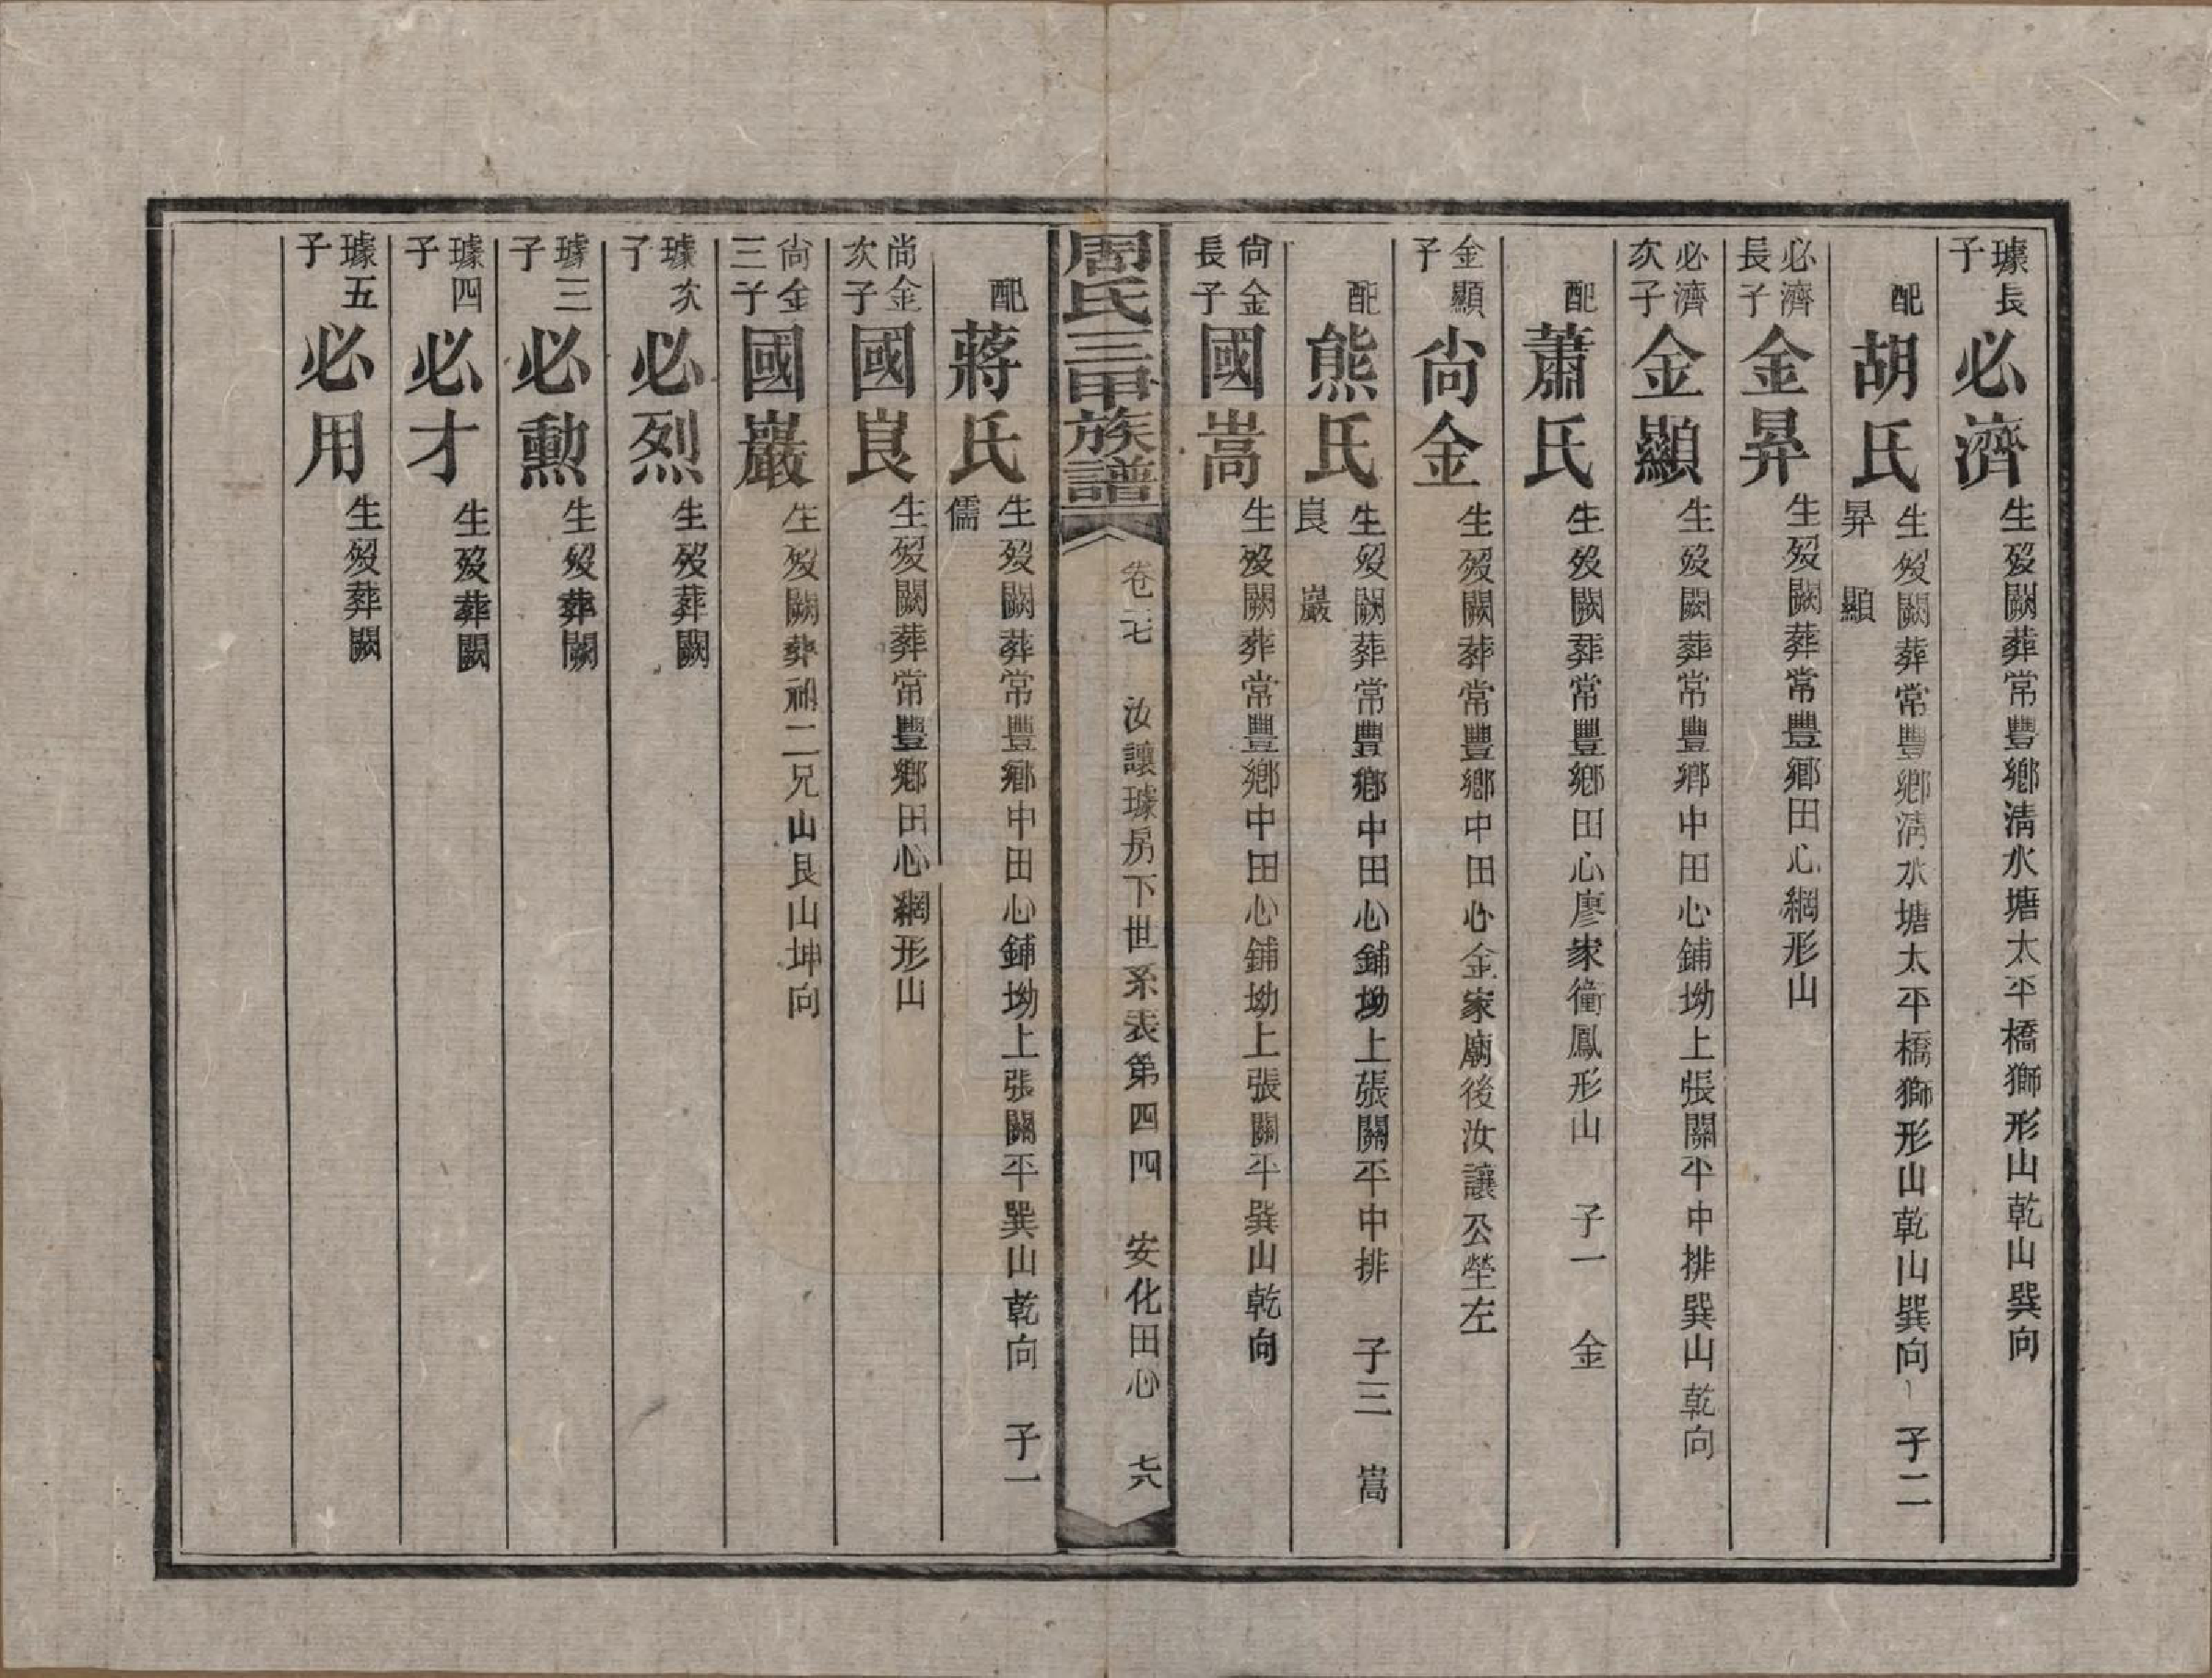 璩長子 必濟 生歿闕葬常豐鄉淸水塘太平橋獅形山乾山巽向
配 胡氏 生歿闕葬常豐鄉淸水塘太平橋獅形山乾山巽向 子二 昇 顯
必濟長子 金昇 生歿闕葬常豐鄉田心網形山
必濟次子 金顯 生歿闕葬常豐鄉中田心鋪坳上張關平中排巽山乾向
配 蕭氏 生歿闕葬常豐鄉田心廖家衝鳳形山 子一 金
金顯子 尙金 生歿闕葬常豐鄉中田心金家廟後汝讓公塋左
配 熊氏 生歿闕葬常豐鄉中田心鋪坳上張關平中排 子三 嵩 崀 巖
尙金長子 國嵩 生歿闕葬常豐鄉中田心鋪坳上張關平巽山乾向
周氏三甲族譜 卷二七 汝讓璩房下世系表第四四 安化田心 七六
配 蔣氏 生歿闕葬常豐鄉中田心鋪坳上張關平巽山乾向 子一 儒
尙金次子 國崀 生歿闕葬常豐鄉田心網形山
尙金三子 國巖 生歿闕葬祔二兄山艮山坤向
璩次子 必烈 生歿葬闕
璩三子 必勲 生歿葬闕
璩四子 必才 生歿葬闕
璩五子 必用 生歿葬闕